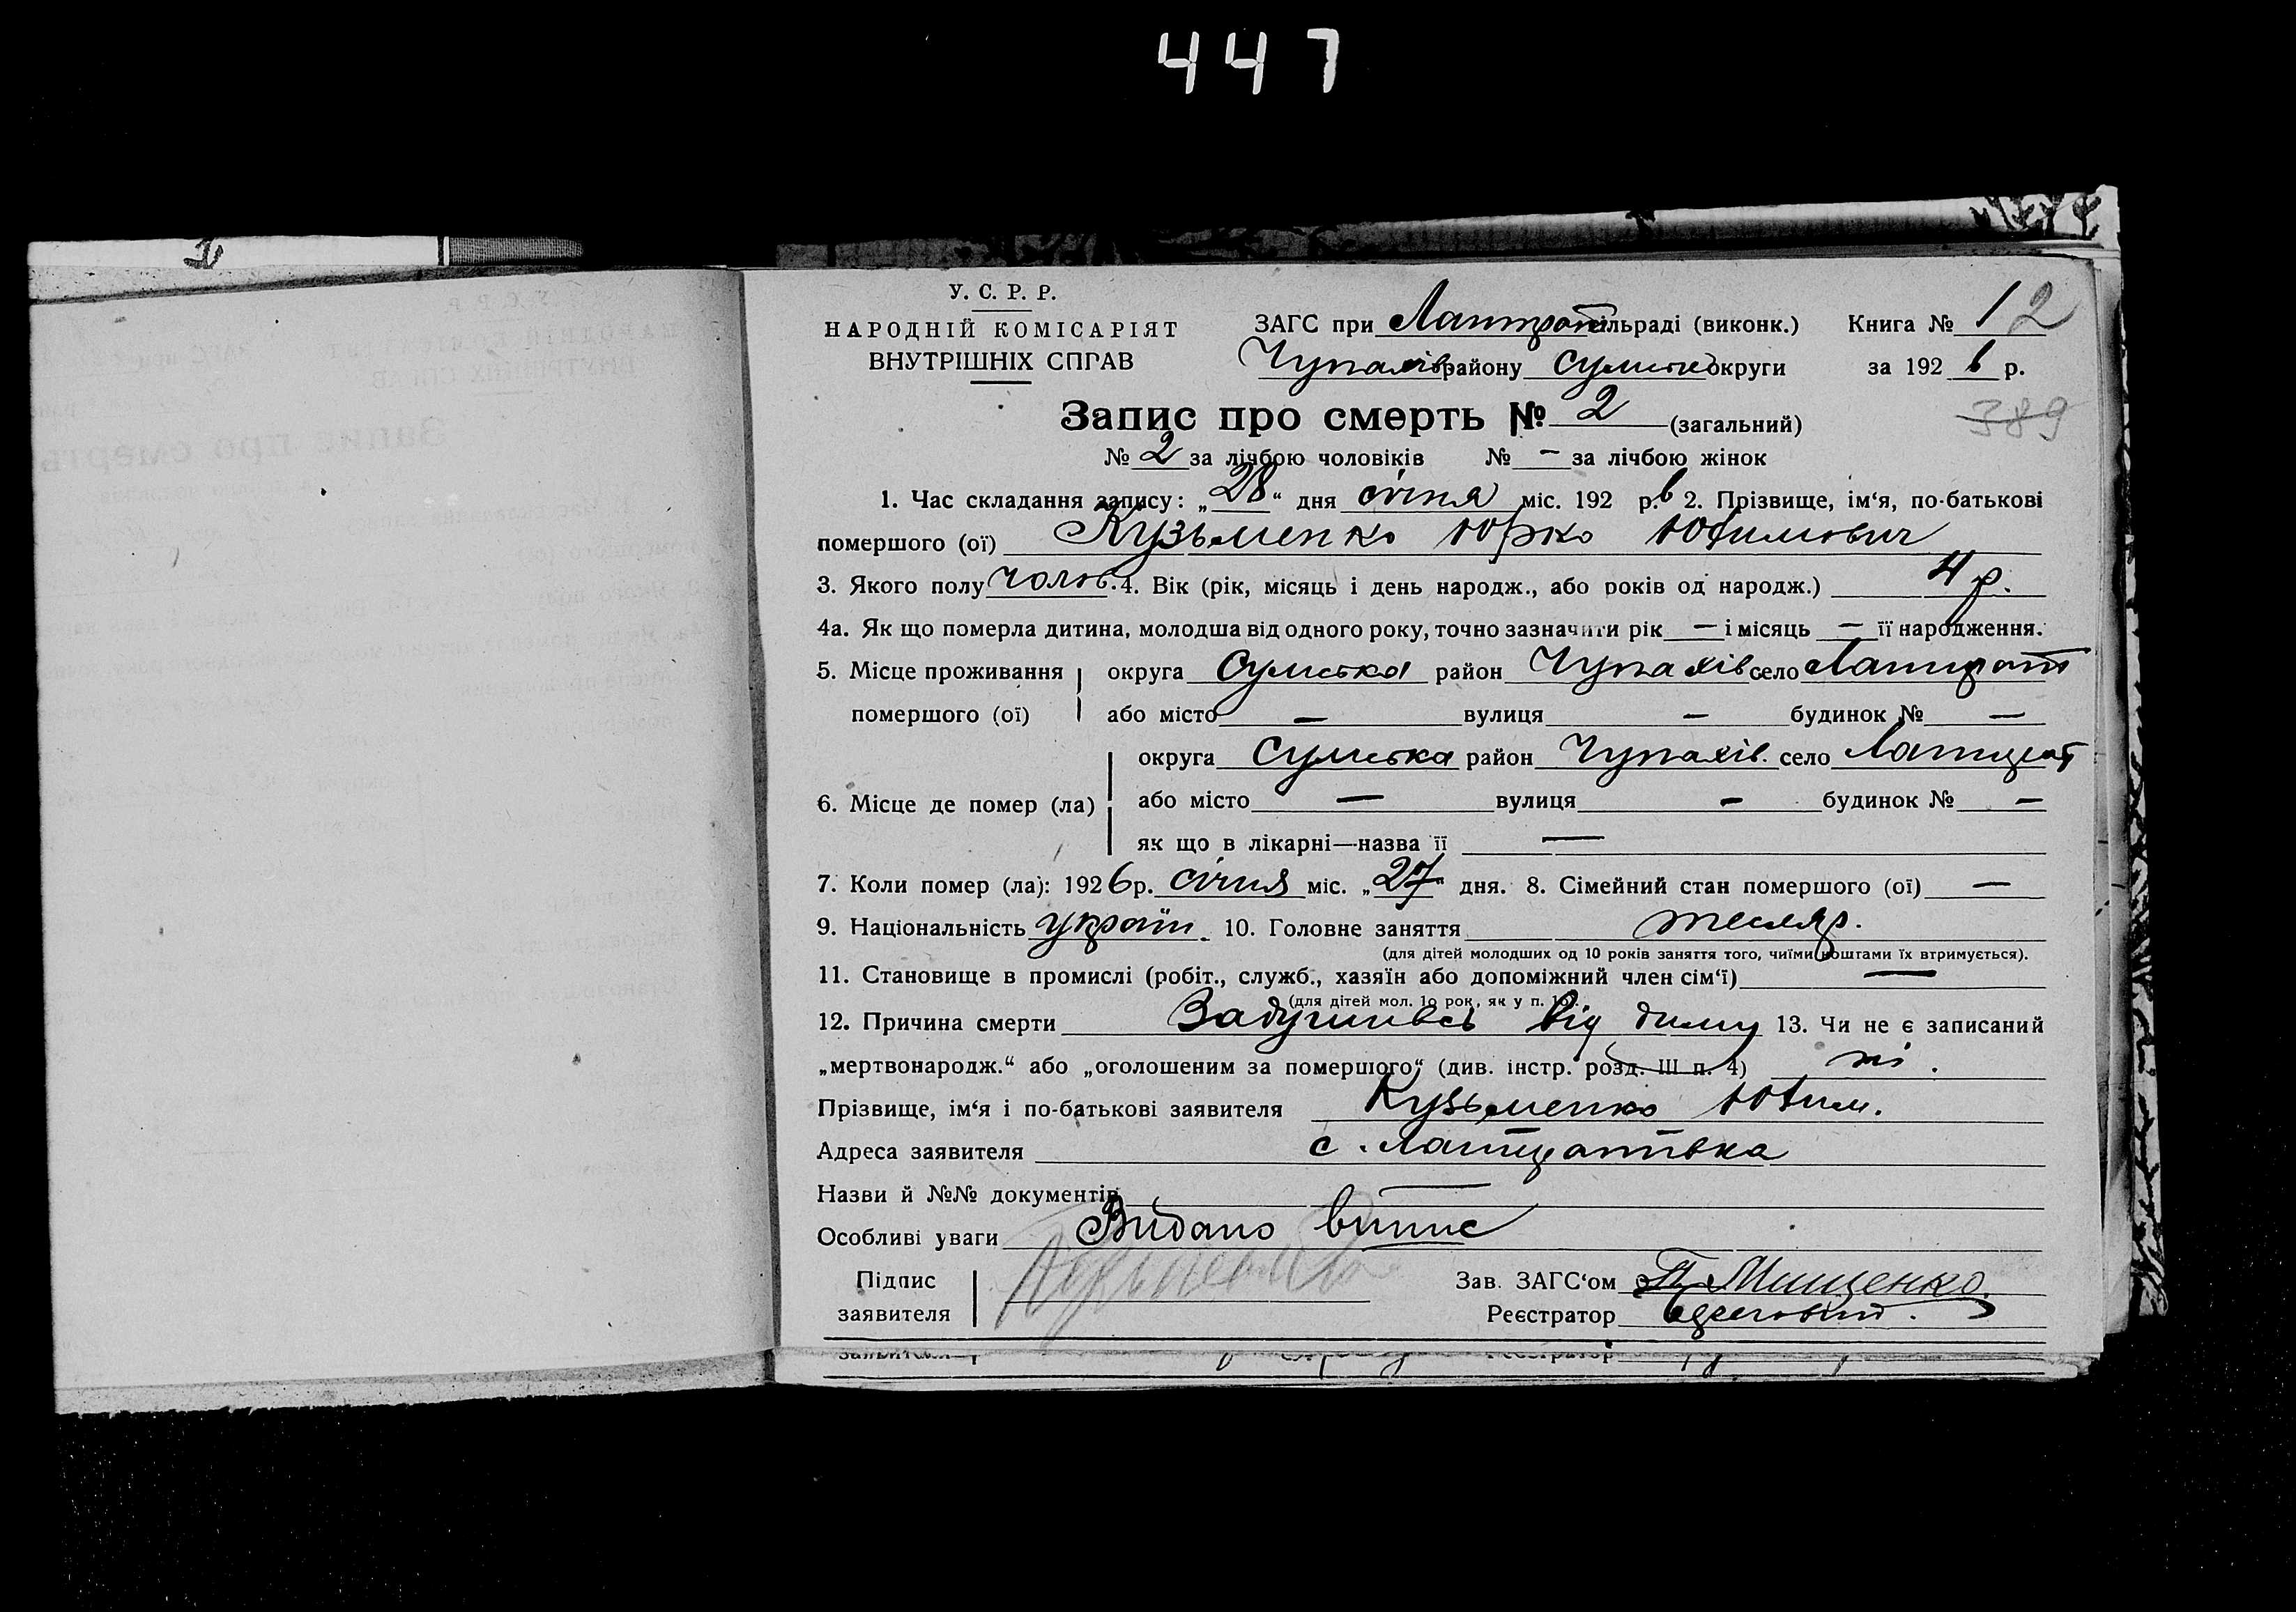 447
У. С. Р. Р.
НАРОДНІЙ КОМІСАРІЯТ
ВНУТРІШНІХ СПРАВ
ЗАГС при сільраді (виконк.) Книга № 1 2
Чупахів району Сумської округи за 1926 р.
389
Запис про смерть № 2 (загальний)
№ 2 за лічбою чоловіків № — за лічбою жінок
1. Час складання запису: „28“ дня січня міс. 192 р. 6 2. Прізвище, ім‘я, по-батькові
помершого (ої) Кузьменко Юрко Юхимович
3. Якого полу чолов. 4. Вік (рік, місяць і день народж., або років од народж.) 4 р.
4а. Як що померла дитина, молодша від одного року, точно зазначити рік — і місяць — її народження.
5. Місце проживання округа Сумська район Чупахів село
помершого (ої) або місто — вулиця — будинок № —
округа Сумська район Чупахів. село
6. Місце де помер (ла) або місто — вулиця — будинок № —
як що в лікарні—назва її —
7. Коли помер (ла): 1926 р. січня міс. „27“ дня. 8. Сімейний стан помершого (ої) —
9. Національність україн. 10. Головне заняття тесляр.
(для дітей молодших од 10 років заняття того, чиїми коштами їх втримується).
11. Становище в промислі (робіт., служб., хазяїн або допоміжний член сім‘ї) —
(для дітей мол. 1о рок, як у п. 10).
12. Причина смерти Задушивсь від диму 13. Чи не є записаний
„мертвонародж.“ або „оголошеним за помершого“ (див. інстр. розд. III п. 4) ні.
Прізвище, ім‘я і по-батькові заявителя Кузьменко Юхим.
Адреса заявителя с.
Назви й №№ документів —
Особливі уваги Видано випис
Підпис Зав. ЗАГС‘ом П. Мищенко
заявителя Реєстратор
заявителя Реєстратор